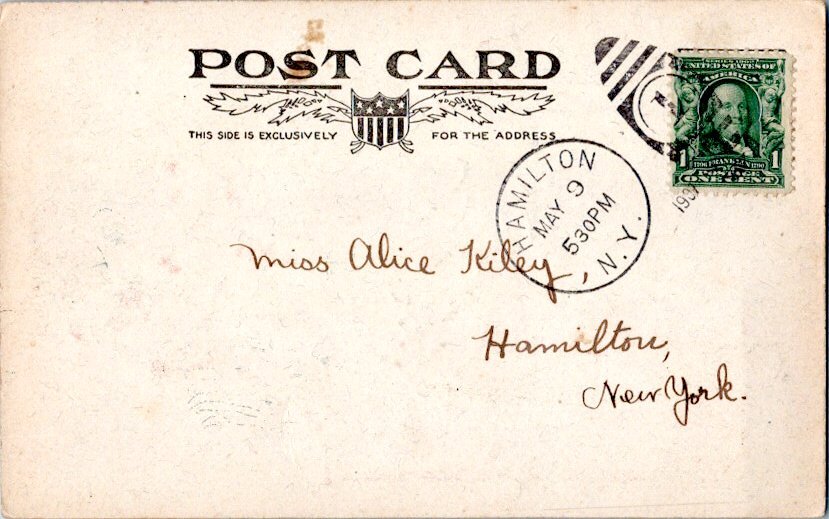 POST CARD
THIS SIDE IS EXCLUSIVELY FOR THE ADDRESS
SERIES 1902
UNITED STATES OF
AMERICA
1 FRANKLIN 1790 1
POSTAGE
ONE CENT
HAMILTON
MAY 9
530PM
N.Y.
Miss Alice Kiley,
Hamilton,
New York.